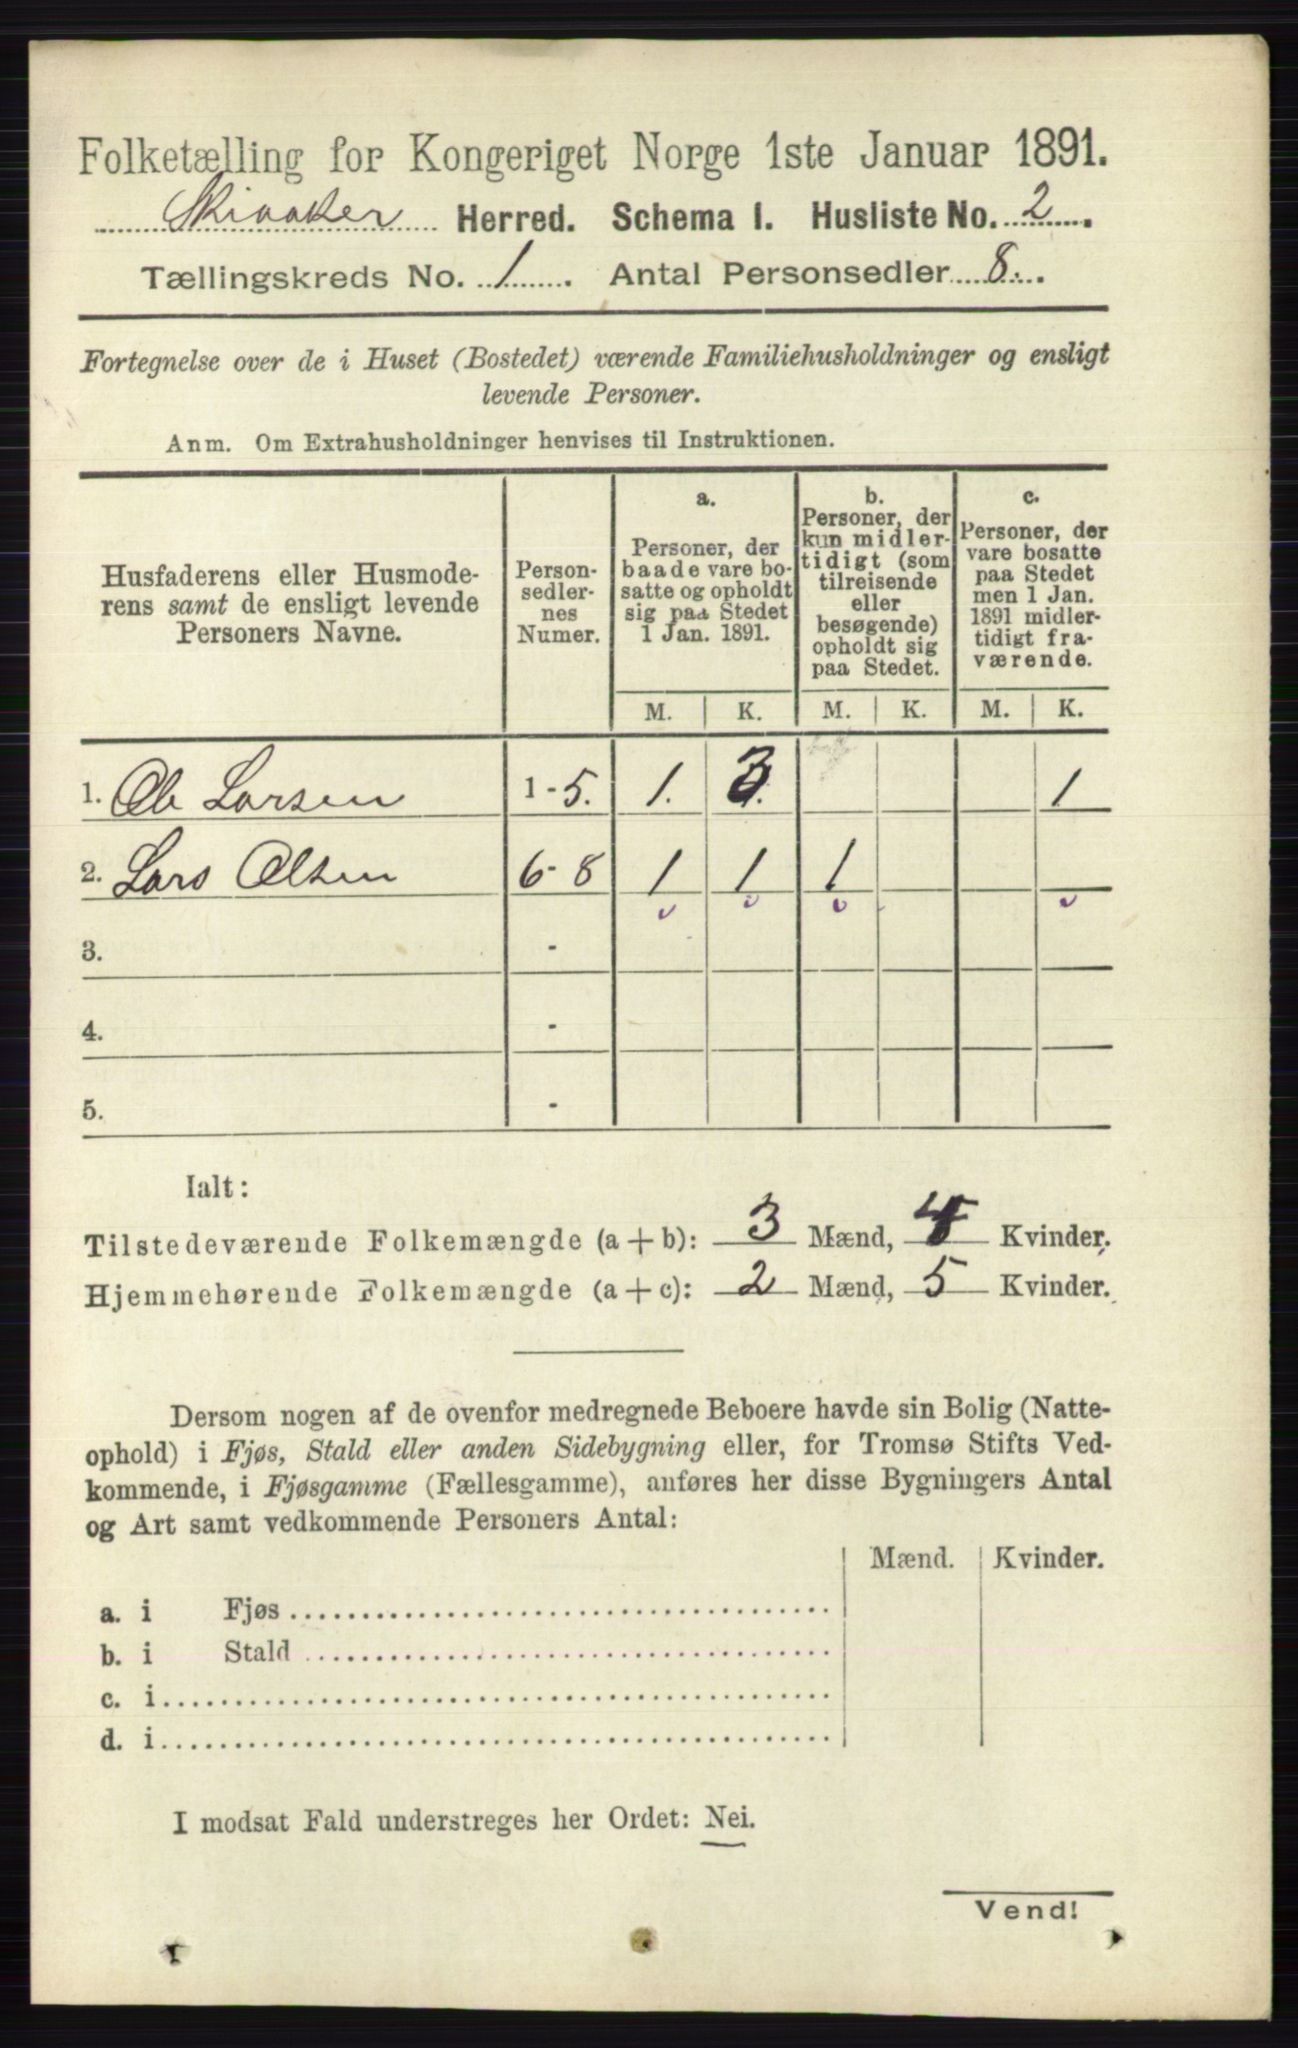 Folketælling for Kongeriget Norge 1ste Januar 1891.
Skiaaker Herred. Schema I. Husliste No. 2.
Tællingskreds No. 1. Antal Personsedler 8.
Fortegnelse over de i Huset (Bostedet) værende Familiehusholdninger og ensligt
levende Personer.
Anm. Om Extrahusholdninger henvises til Instruktionen.
Husfaderens eller Husmode-
rens samt de ensligt levende
Personers Navne.
Person-
sedler-
nes
Numer.
a.
Personer, der
baade vare bo-
satte og opholdt
sig paa Stedet
1 Jan. 1891.
b.
Personer, der
kun midler-
tidigt (som
tilreisende
eller
besøgende)
opholdt sig
paa Stedet.
c.
Personer, der
vare bosatte
paa Stedet
men 1 Jan.
1891 midler-
tidigt fra-
værende.
M. K. M. K. M. K.
1. Ole Larsen 1-5. 1. 3. 1
2. Lars Olsen 6-8 1 1 1
3. -
4. -
5. -
Ialt:
Tilstedeværende Folkemængde (a+b): 3 Mænd, 4 Kvinder.
Hjemmehørende Folkemængde (a+c): 2 Mænd, 5 Kvinder.
Dersom nogen af de ovenfor medregnede Beboere havde sin Bolig (Natte-
ophold) i Fjøs, Stald eller anden Sidebygning eller, for Tromsø Stifts Ved-
kommende, i Fjøsgamme (Fællesgamme), anføres her disse Bygningers Antal
og Art samt vedkommende Personers Antal:
Mænd. Kvinder.
a. i Fjøs
b. i Stald
c. i
d. i
I modsat Fald understreges her Ordet: Nei.
Vend!